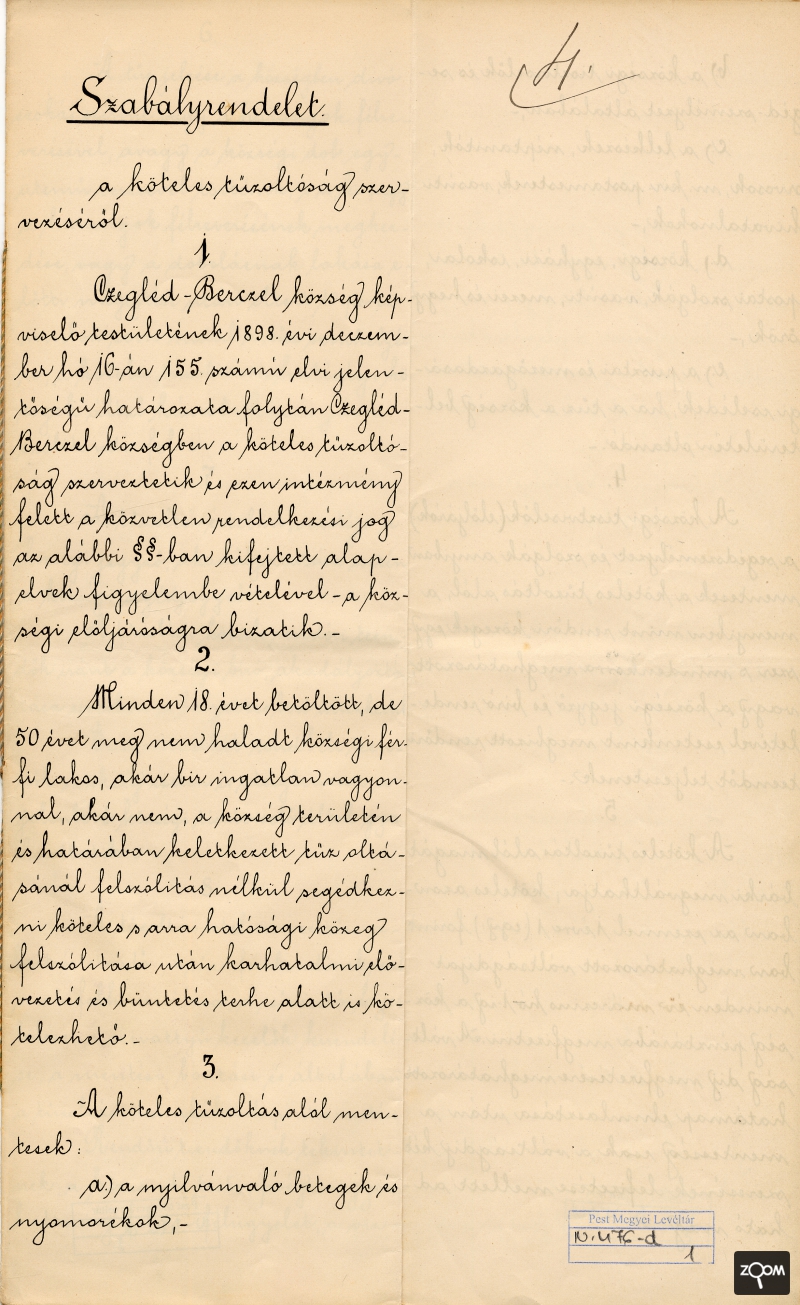 Szabályrendelet.
4.
a köteles tűzoltóság szer-
vezéséről.
1.
Czegléd-Berczel község kép-
viselő testületének 1898. évi deczem-
ber hó 16-án 155. számú elvi jelen-
tőségű határozata folytán Czegléd-
Berczel községben a köteles tűzoltó-
ság szerveztetik és ezen intézmény
felett a közvetlen rendelkezési jog
az alábbi §§-ban kifejtett alap-
elvek figyelembe vételével - a köz-
ségi előljáróságra bizatik. -
2.
Minden 18. évet betöltött, de
50 évet meg nem haladt községi fér-
fi lakos, akár bir ingatlan vagyon-
nal, akár nem, a község területén
és határában keletkezett tűz oltá-
sánál felszólitás nélkül segédkez-
ni köteles s arra hatósági közeg
felszólitása után karhatalmi elő-
vezetés és büntetés terhe alatt is kö-
telezhető. -
3.
A köteles tűzoltás alól men-
tesek:
a.) a nyilvánvaló betegek és
nyomorékok, -
Pest Megyei Levéltár
IV. 476-d
1
ZOOM